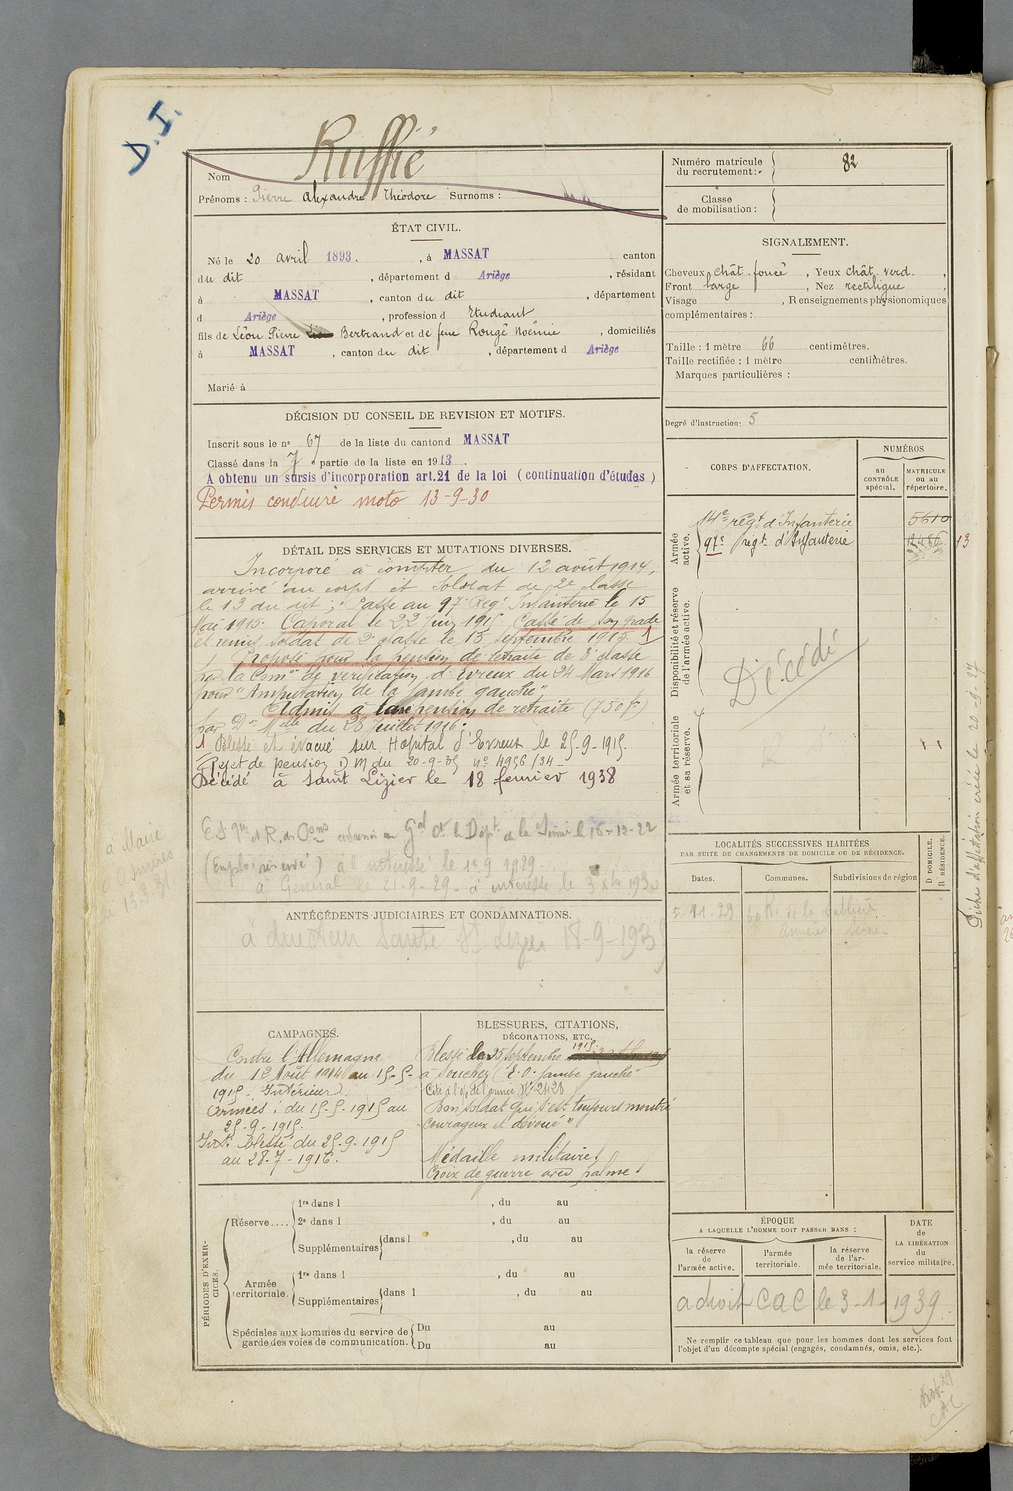 D.I.
Ruffié
Nom
Prénoms : Pierre Alexandre Théodore Surnoms :
ÉTAT CIVIL.
Né le 20 avril 1893. , à MASSAT canton
du dit , département d Ariège , résidant
à MASSAT , canton du dit , département
d Ariège , profession d Etudiant
fils de Léon Pierre Bertrand et de feue Rougé Noémie , domiciliés
à MASSAT , canton du dit , département d Ariège
Marié à
DÉCISION DU CONSEIL DE REVISION ET MOTIFS.
Inscrit sous le no 67 de la liste du canton d MASSAT
Classé dans la 7 partie de la liste en 1913.
A obtenu un sursis d'incorporation art.21 de la loi (continuation d'études)
Permis conduire moto 13-9-30
DÉTAIL DES SERVICES ET MUTATIONS DIVERSES.
Incorporé à compter du 12 août 1914,
arrivé au corps et soldat de 2e classe
le 13 du dit ; Passe au 97e Régt Infanterie le 15
Mai 1915. Caporal le 22 juin 1915 Cassé de son grade
et remis soldat de 2e classe le 13 septembre 1915 1
Proposé pour la pension de retraite de 8e classe
par la Comon de vérification d'Evreux du 24 Mars 1916
pour "Amputation de la jambe gauche"
Admis à la pension de retraite (750f)
par Don Mlle du 28 juillet 1916.
1 Blessé et évacué sur Hopital d'Evreux le 25-9-1915.
Rejet de pension D M du 20-9-35 no 4956/34-
Décédé à Saint Lizier le 18 fevrier 1938
le 16-12-22
(Emploi réservé) à l'intéressé le 1929-
à Général le 21-9-29- à intéressé le 3 1930
ANTÉCÉDENTS JUDICIAIRES ET CONDAMNATIONS.
à directeur Santé St Lizier 18-9-193
CAMPAGNES.
Contre l'Allemagne
du 12 Août 1914 au 15-5-
1915. Intérieur.
Armées : du 15.5.1915 au
25-9-1915.
Intr. Blessé du 25.9.1915
au 28-7-1916.
BLESSURES, CITATIONS,
DÉCORATIONS, ETC.
Blessé le 25 Septembre 1915.
à Souchez (E.O. jambe gauche
Cité à l'o/ de l'armée No 2428
"Bon soldat qui s'est toujours montré
courageux et dévoué"
Médaille militaire.
Croix de guerre avec palme.
PÉRIODES D'EXERCICES.
Réserve.... 1re dans l , du au
2e dans l , du au
Supplémentaires dans l , du au
Armée territoriale. 1re dans l , du au
Supplémentaires dans l , du au
Spéciales aux hommes du service de garde des voies de communication. Du au
Du au
Numéro matricule du recrutement : 82
Classe de mobilisation :
SIGNALEMENT.
Cheveux chât. foncé , Yeux chât. verd. ,
Front large , Nez rectiligne ,
Visage , Renseignements physionomiques
complémentaires :
Taille : 1 mètre 66 centimètres.
Taille rectifiée : 1 mètre centimètres.
Marques particulières :
Degré d'instruction : 5
CORPS D'AFFECTATION.
NUMÉROS
au CONTRÔLE spécial.
MATRICULE ou au répertoire.
Armée active.
14e régt d'Infanterie 5610
97e régt d'Infanterie 12486 13
Disponibilité et réserve de l'armée active.
Décédé
Armée territoriale et sa réserve.
LOCALITÉS SUCCESSIVES HABITÉES
PAR SUITE DE CHANGEMENTS DE DOMICILE OU DE RÉSIDENCE.
Dates. Communes. Subdivisions de région
D. DOMICILE. R. RÉSIDENCE.
5-11-29 60 R. de la Sablière
Asnières Seine-
ÉPOQUE
A LAQUELLE L'HOMME DOIT PASSER DANS :
la réserve de l'armée active.
l'armée territoriale.
la réserve de l'armée territoriale.
DATE de LA LIBÉRATION du service militaire.
a droit CAC le 3-1-1939.
Ne remplir ce tableau que pour les hommes dont les services font
l'objet d'un décompte spécial (engagés, condamnés, omis, etc.).
Fiche d'affectation créée le 20-3-27
à Mairie
CAC